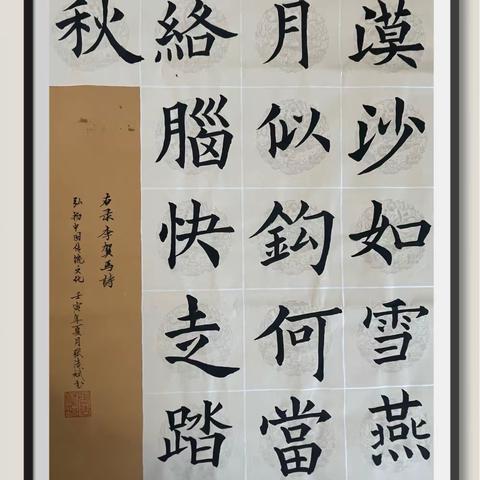 漠沙如雪燕
月似鈎何當
絡腦快走踏
秋
右录李賀馬詩
弘扬中国传统文化 壬寅年夏月張